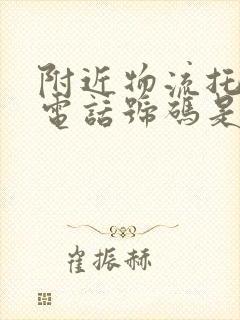 附近物流托
電話號碼是
崔振赫